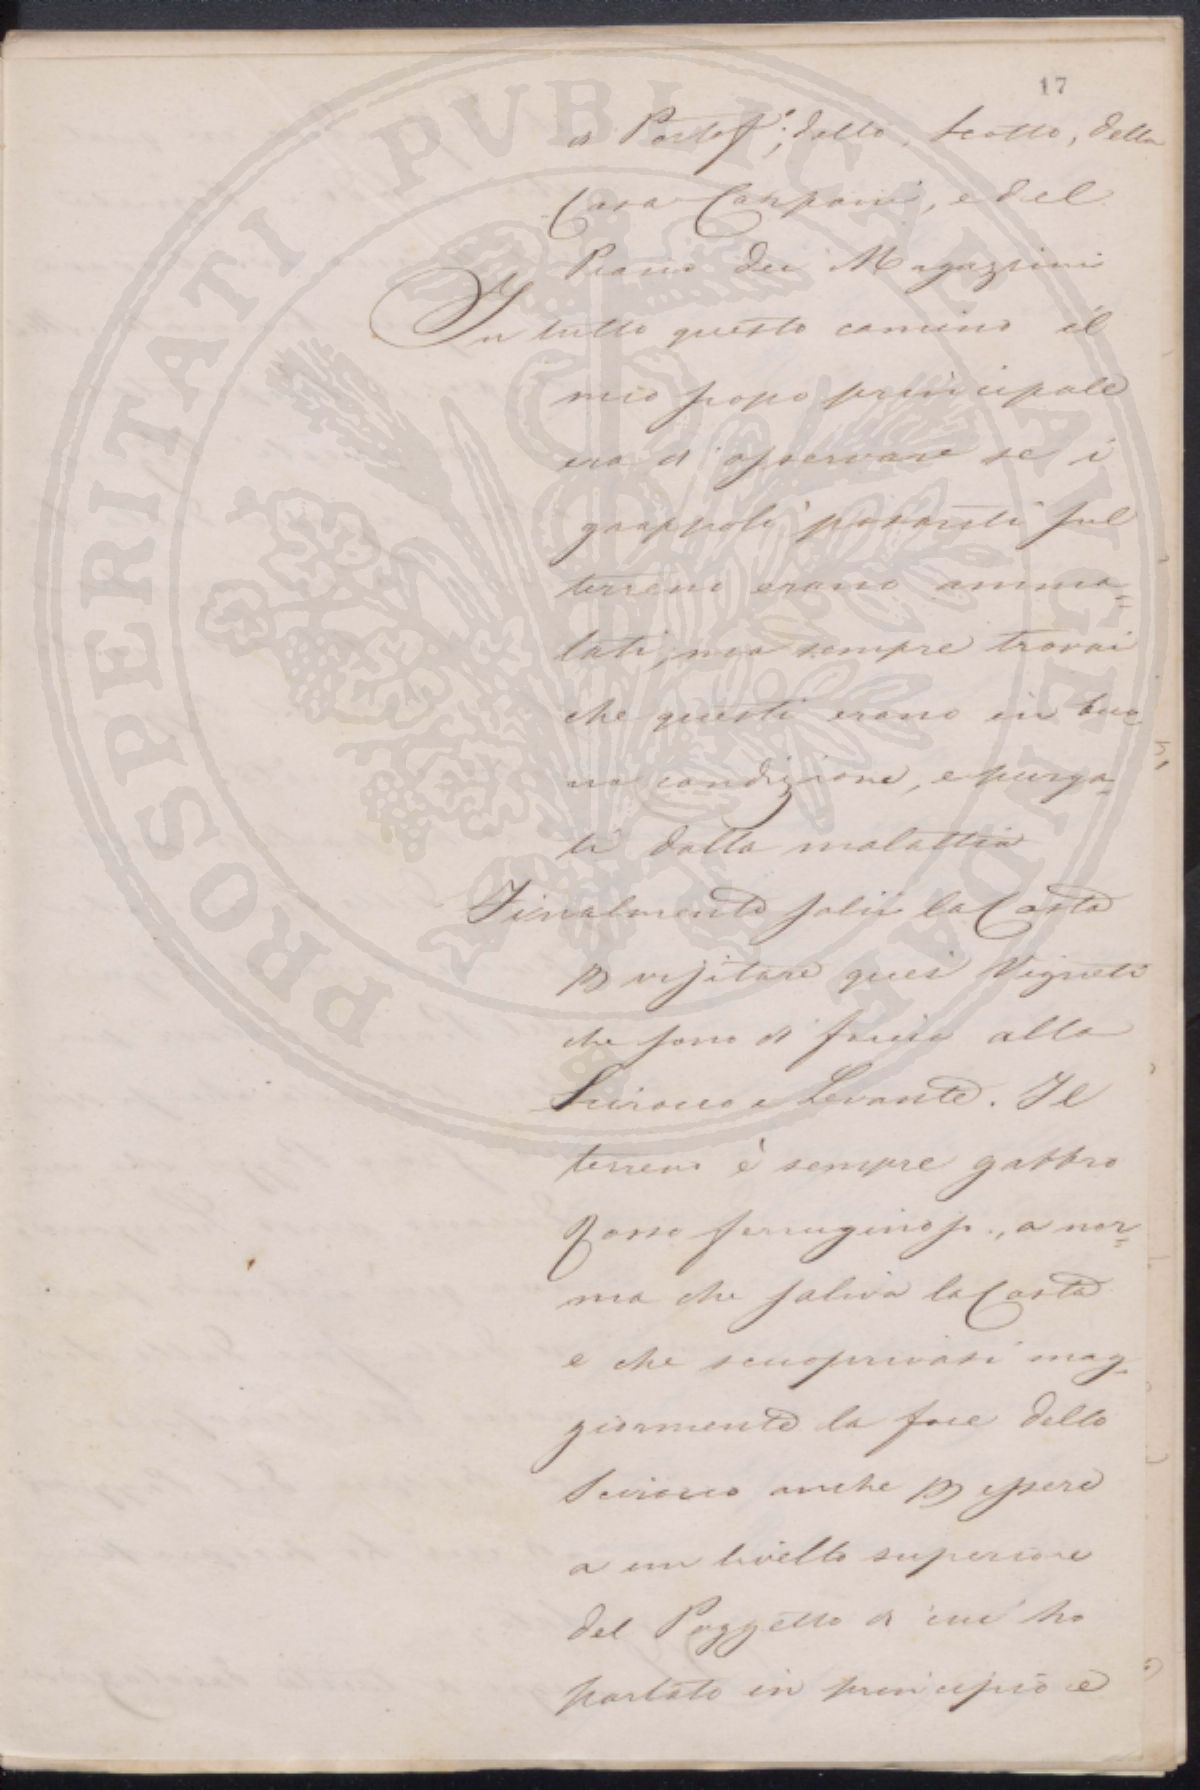 17
di Portof.º; dello Scotto, della
Casa Campani, e del
Piano dei Magazzini
In tutto questo camino il
mio scopo principale
era di osservare se i
grappoli posanti sul
terreno erano amma=
lati, ma sempre trovai
che questi erano in buo
na condizione, e purga=
ti dalla malattia
Finalmente salii la Costa
p visitare quei Vigneti
che sono di faccia allo
Scirocco e Levante. Il
terreno è sempre gabbro
Rosso ferruginoso, a nor=
ma che saliva la Costa
e che scuoprivasi mag=
giormente la foce dello
Scirocco anche p essere
a un livello superiore
del Poggetto di cui ho
parlato in principio e
PROSPERITATI PVBLICAE AVGENDAE